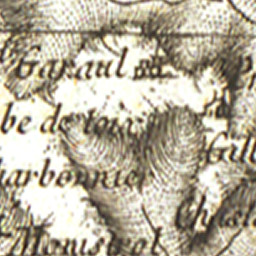 Garaul
be de tour
Gill
harbonnier
Chasla
Monistrol